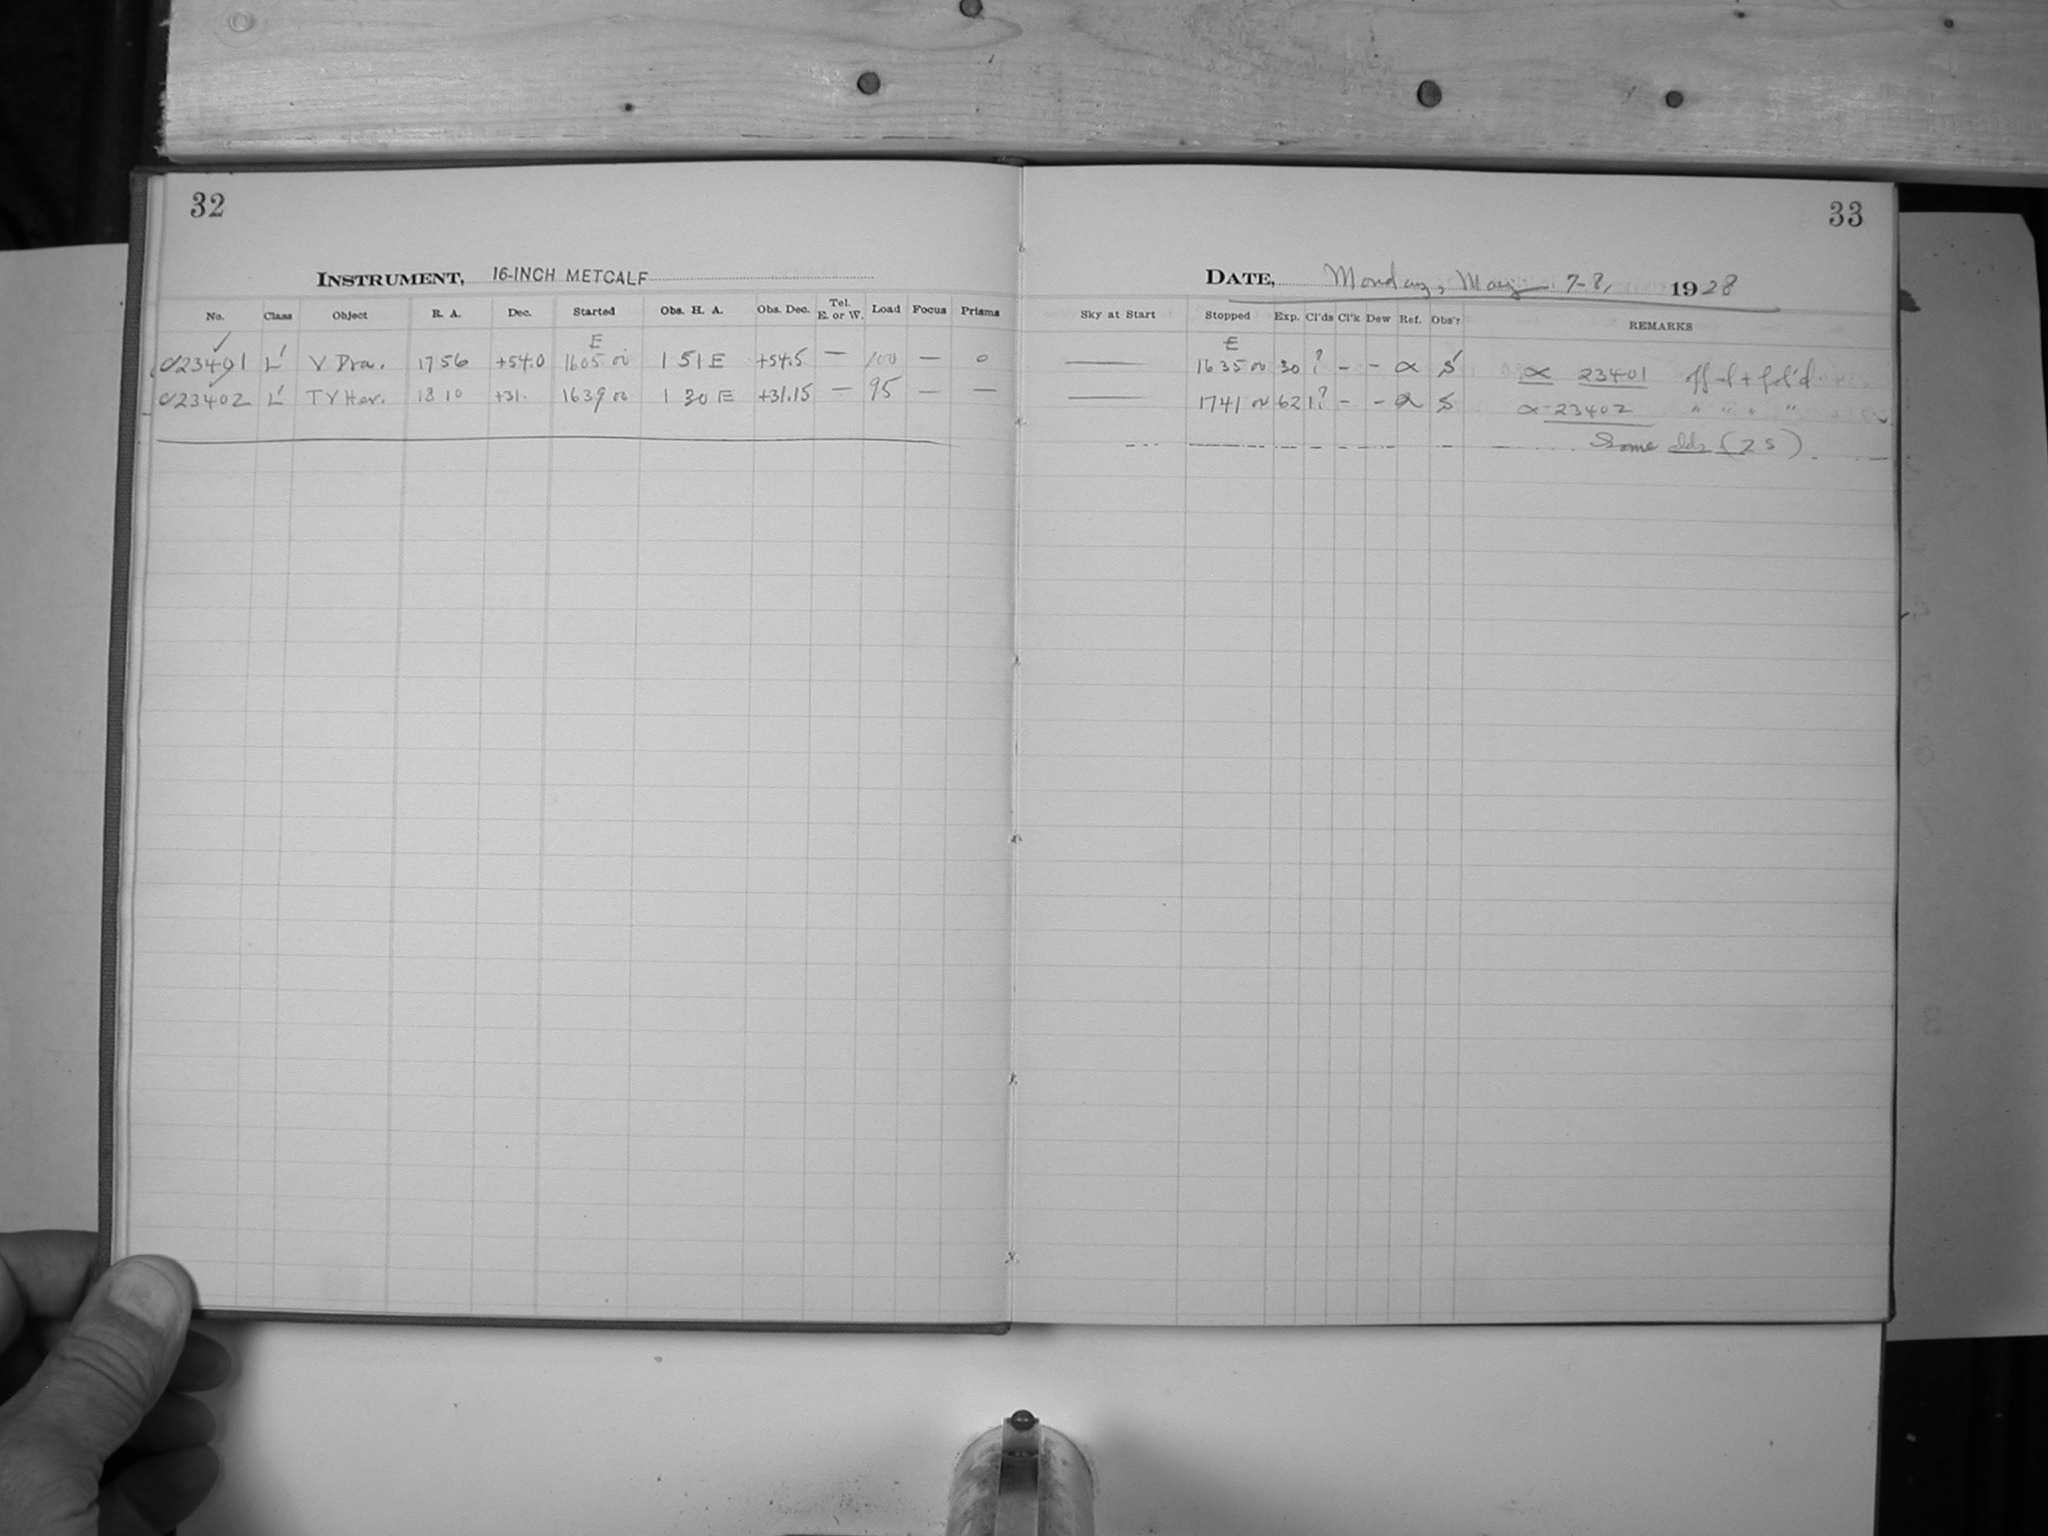 32
INSTRUMENT, 16-INCH METCALF
No. Class Object R. A. Dec. Started Obs. H. A. Obs. Dec. Tel. E. or W. Load Focus Prisms
E
23401 L V Dra. 17 56 +54.0 1605 00 1 51 E +54.5 — 100 — 0
23402 L TY Her. 18 10 +31. 1639 00 1 30 E +31.15 — 95 — —
33
DATE, Monday, May 7-8, 1928
Sky at Start Stopped Exp. Cl'ds Cl'k Dew Ref. Obs'r REMARKS
E
—— 1635 00 30 ? - - α S α 23401 off-l + fol'd
—— 1741 00 62 1? - - α S α-23402 " " " "
Some clds (2 S)